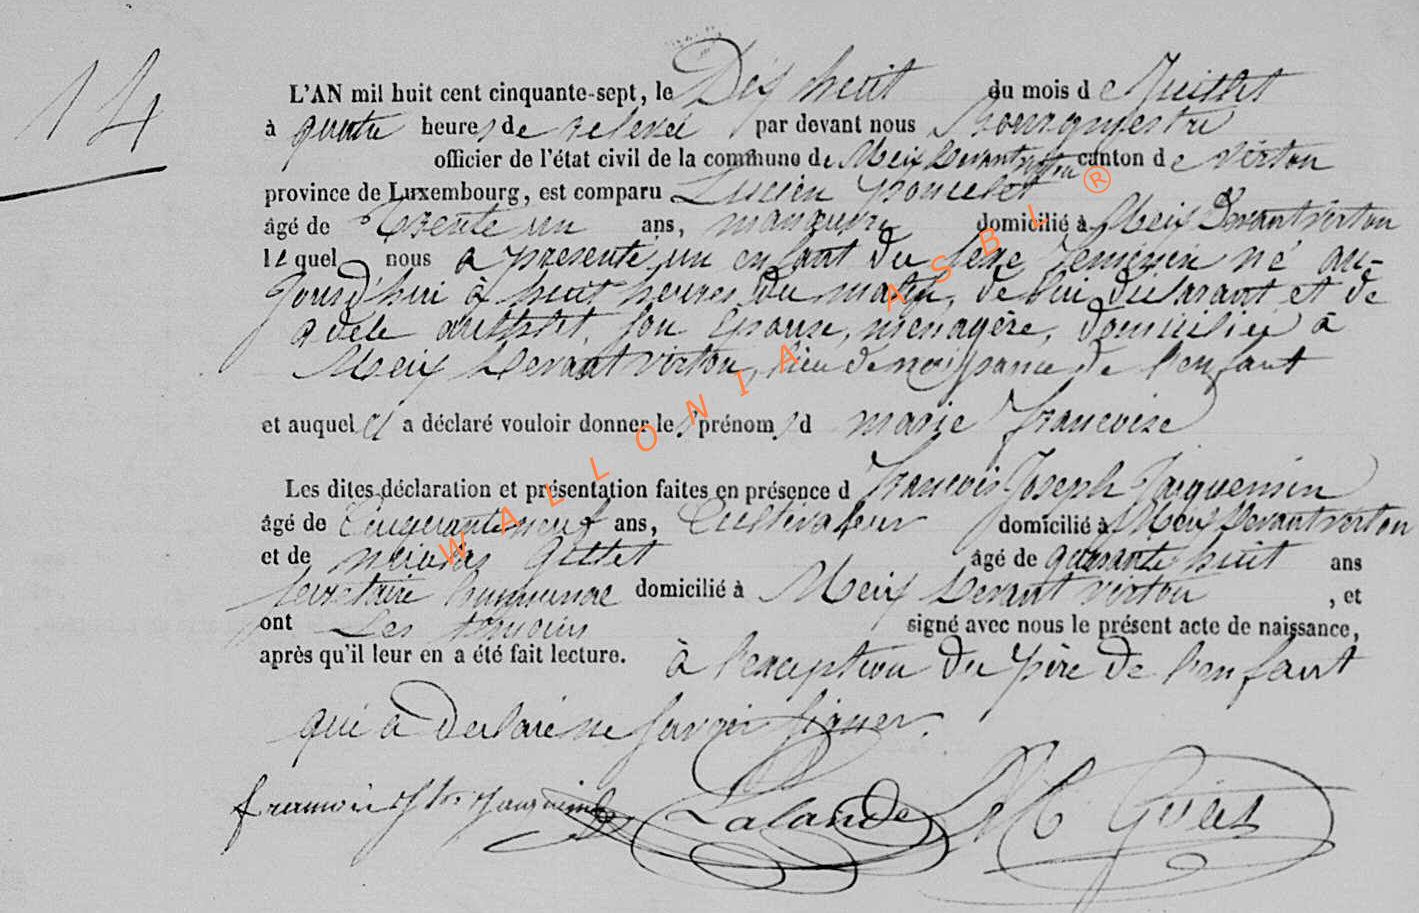 14
L'AN mil huit cent cinquante-sept, le Dix huit du mois de Juillet
à quatre heures de relevée par devant nous Bourgmestre
officier de l'état civil de la commune de Meix Devant virton canton de virton
province de Luxembourg, est comparu Lucien poncelet
âgé de Trente un ans, manœuvre domicilié à Meix Devant virton
lequel nous a présenté un enfant du sexe féminin né au-
jourd'hui à huit heures du matin, de lui déclarant et de
adèle son épouse, ménagère, domiciliée à
Meix Devant virton, lieu de naissance de l'enfant
et auquel il a déclaré vouloir donner les prénoms d marie francoise
Les dites déclaration et présentation faites en présence d francois Joseph Jacquemin
âgé de Cinquante neuf ans, Cultivateur domicilié à Meix Devant virton
et de nicolas Gillet âgé de quarante huit ans
secrétaire communal domicilié à Meix Devant virton , et
ont Les témoins signé avec nous le présent acte de naissance,
après qu'il leur en a été fait lecture. à l'exception du père de l'enfant
qui a déclaré ne savoir signer.
francois Jph Jacquemin Lalande
WALLONIA ASBL ®